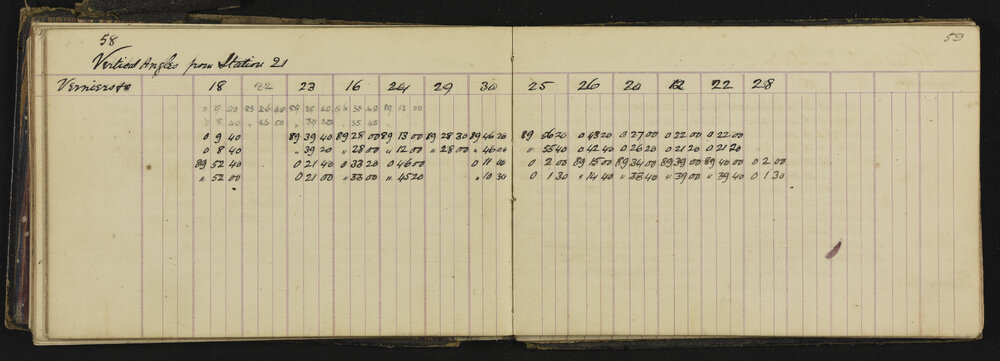 58
59
Vertical Angles from Station 21
Verniers 18 22 23 16 24 29 30 25 26 20 12 22 28
0 9 40 89 39 40 89 28 00 89 13 00 89 28 30 89 46 20 89 56 20 0 43 20 0 27 00 0 22 00 0 22 00
0 8 40 " 39 20 " 28 00 " 12 00 " 28 00 " 46 00 " 55 40 0 42 40 0 26 20 0 21 20 0 21 20
89 52 40 0 21 40 0 33 20 0 46 00 0 11 00 0 2 00 89 15 00 89 34 00 89 39 00 89 40 00 0 2 00
" 52 00 0 21 00 " 33 00 " 45 20 " 10 30 0 1 30 " 14 40 " 33 40 " 39 00 " 39 40 0 1 30